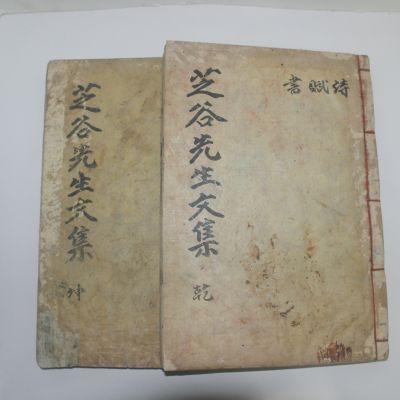 詩賦書
芝谷先生文集
乾
芝谷先生文集
坤